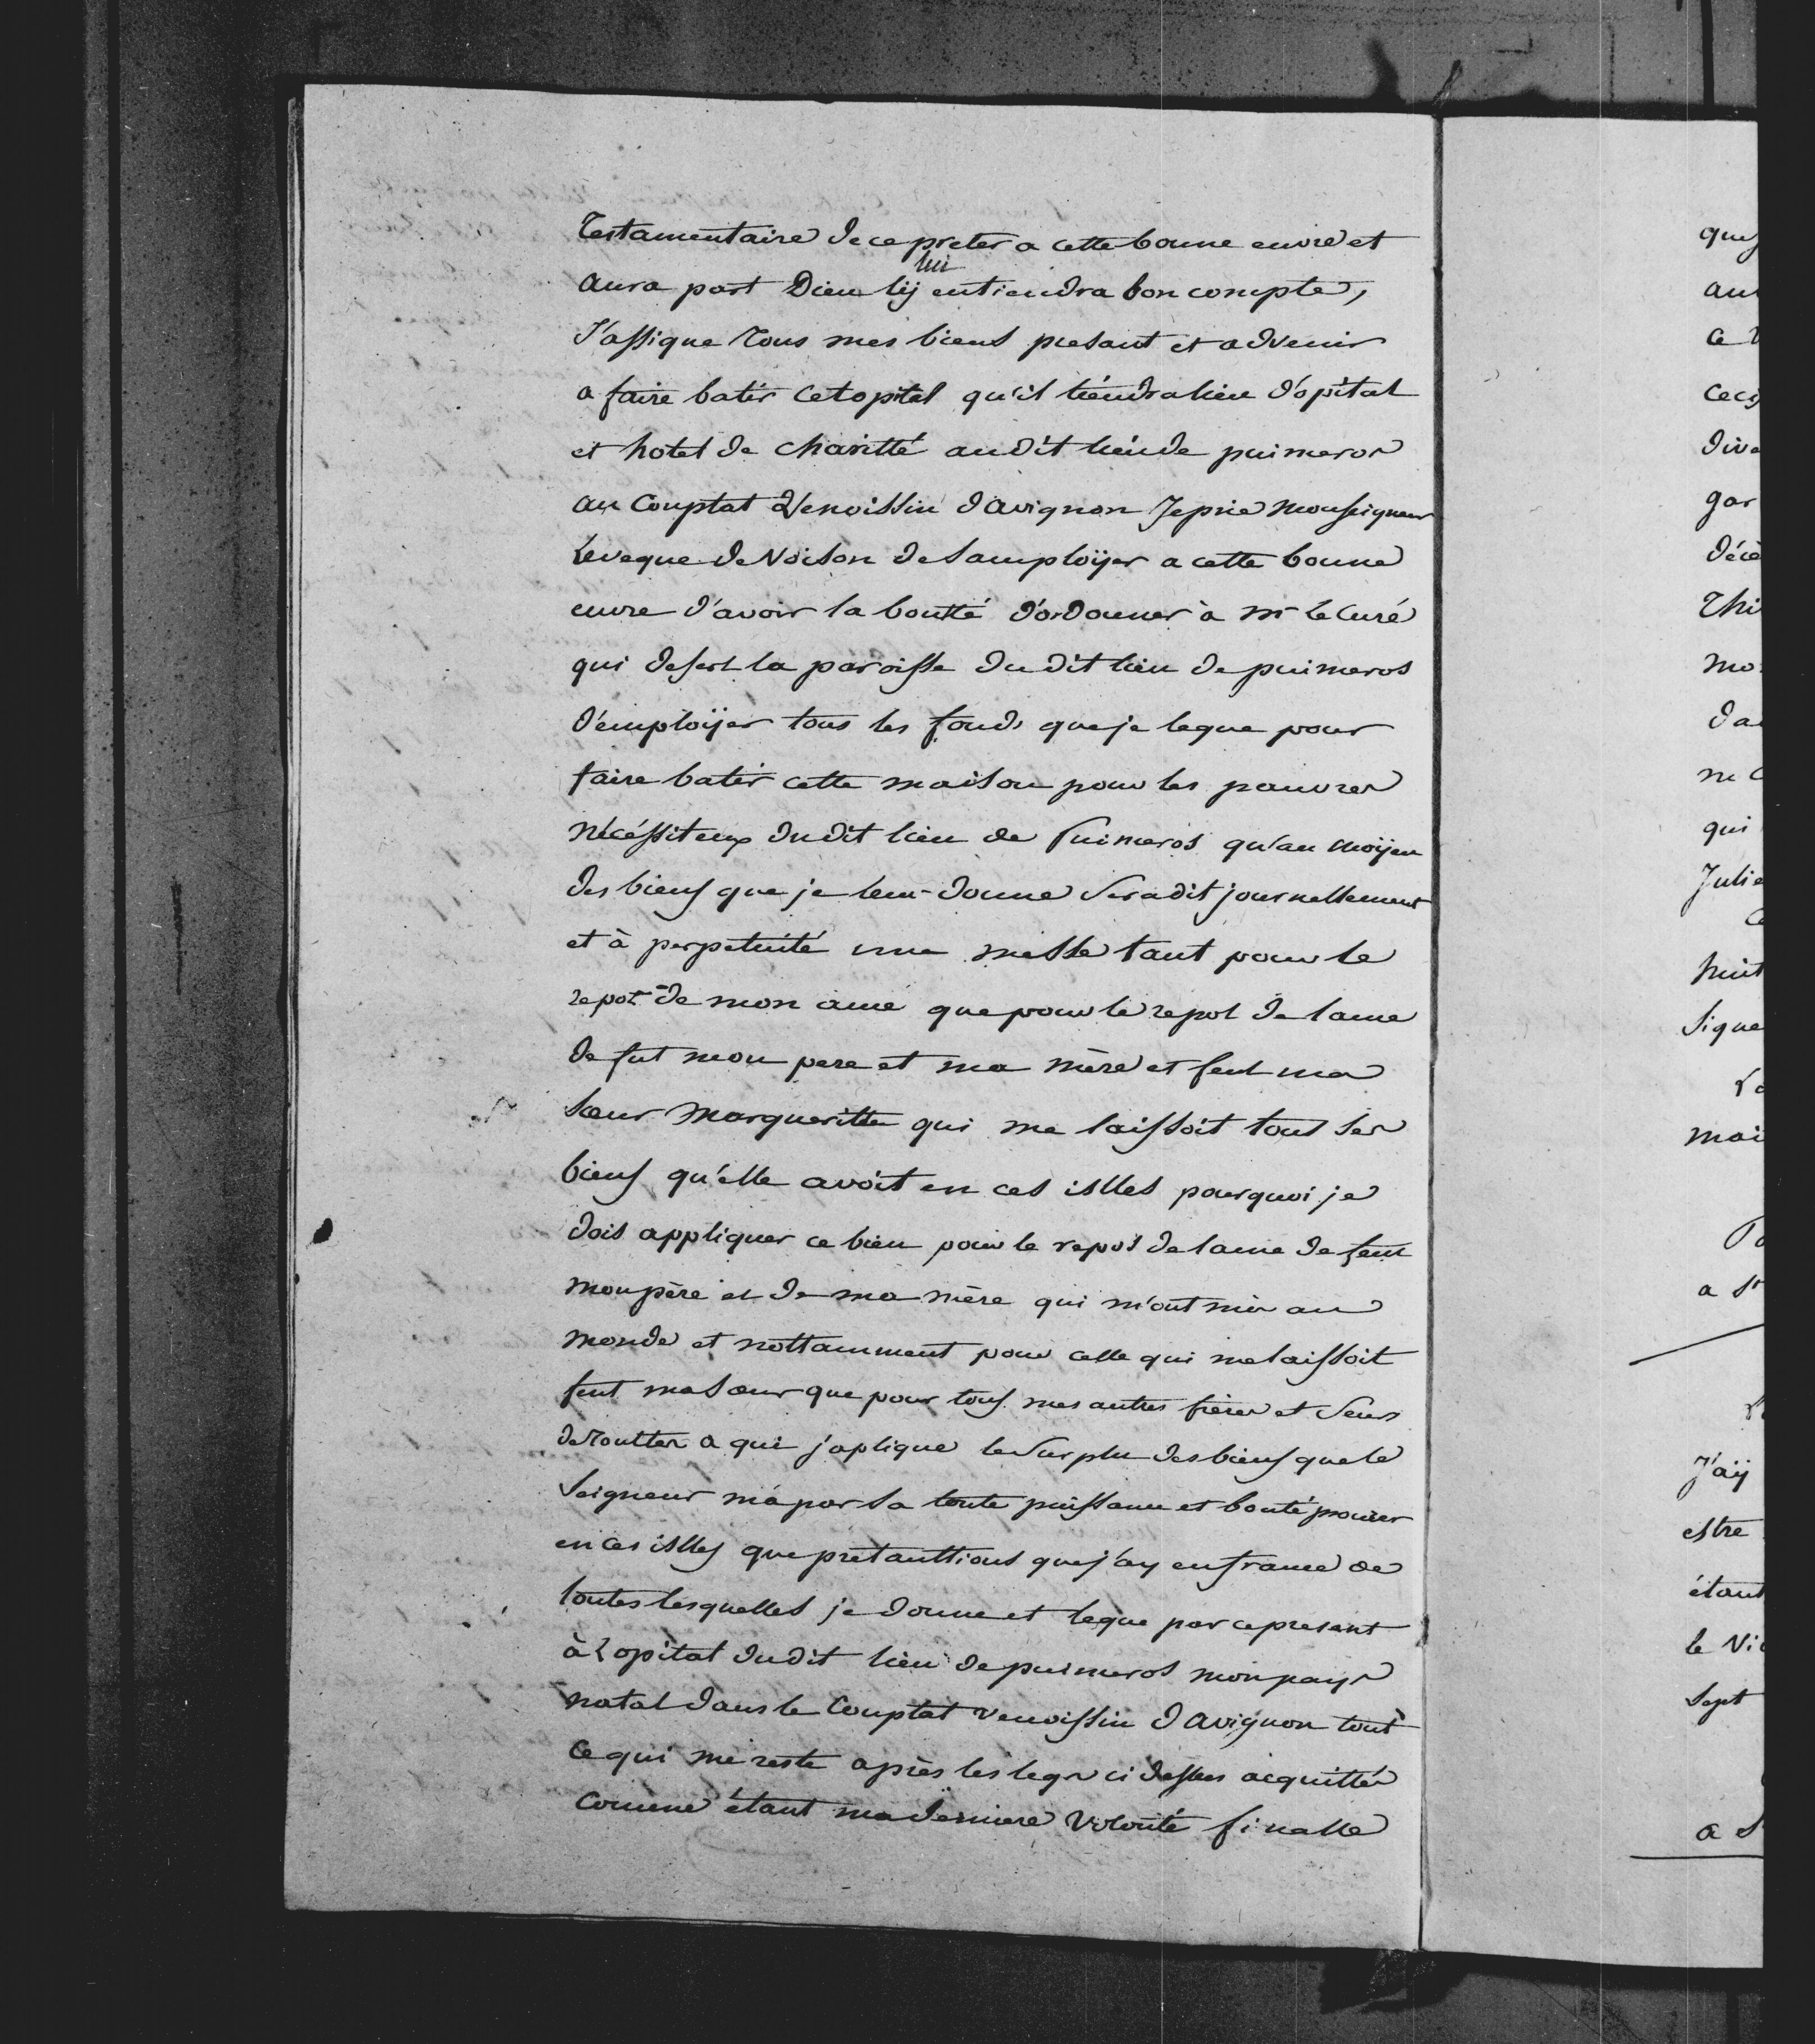 Testamentaire de ce preter a cette bonne euvre et
aura part Dieu lij lui entiendra bon compte,
J'assigne tous mes biens presant et advenir
a faire batir cetopital qu'il tiendra lieu d'opital
et hotel de charitté audit lieu de puimeros
au Comptat Venoissin d'avignon Je prie Monseigneur
Leveque de Voison de samploÿer a cette bonne
euvre d'avoir la bontté d'ordonner à mr le Curé
qui desert la paroisse du dit lieu de puimeros
d'emploÿer tous les fonds que je legue pour
faire batir cette maison pour les pauvres
nécéssiteux dudit lieu de Puimeros qu'au moÿen
des biens que je leur donne sera dit journellement
et à perpetuité une messe tant pour le
repot de mon ame que pour le repot de lame
de fut mon pere et ma mère et feut ma
sœur Margueritte qui me laissoit tout ses
biens qu'elle avoit en ces isles pourquoi je
dois appliquer ce bien pour le repos de lame de feut
mon père et de ma mère qui m'ont mis au
monde et nottamment pour celle qui me laissoit
feut ma sœur que pour tous mes autres frères et seurs
de touttes a qui j'aplique le surplu des biens que le
Seigneur m'a par sa toute puissance et bonté
en ces isles que pretanttions que j'ay en france de
toutes lesquelles je donne et legue par ce present
à Lopital dudit lieu de puimeros mon pays
natal dans le Comptat Venoissin d'avignon tout
ce qui me reste après les legs ci dessus acquittés
comme étant ma derniere volonté finalle
que
ce
huit
signe
J'aÿ
estre
étant
sept